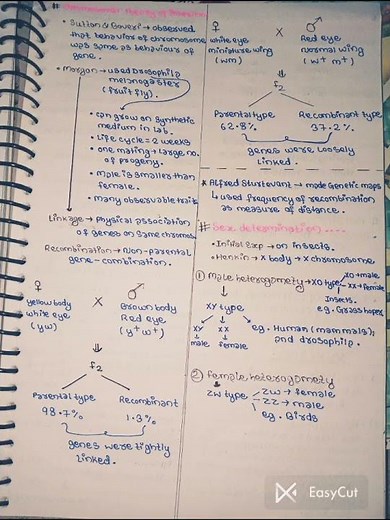 # Chromosomal Theory of Inheritance
• Sutton & Boveri → observed
that behavior of chromosome
was same as behaviour of
gene.
• Morgan → used Drosophila
melanogaster
(fruit fly).
• can grow on synthetic
medium in lab.
• Life cycle = 2 weeks
• one mating → large no.
of progeny.
• male is smaller than
female.
• many observable trait
Linkage → physical association
of genes on same chromos.
Recombination → non-parental
gene-combination.
♀ X ♂
yellow body
white eye
(yw)
Brown body
Red eye
(y⁺w⁺)
⇓
f₂
Parental type
98.7%
Recombinant
1.3%
genes were tightly
linked.
♀ X ♂
white eye
miniature wing
(wm)
Red eye
normal wing
(w⁺ m⁺)
⇓
f₂
Parental type
62.8%
Recombinant type
37.2%
genes were loosely
linked.
* Alfred Sturtevant → made Genetic maps
↳ used frequency of recombination
as measure of distance.
# Sex determination
• Initial Exp → on insects.
• Henkin → x body → x chromosome
① Male heterogamety → XO type
XO → male
XX → female
Insects.
e.g. Grasshoper
XY type
XY
male
XX
female
eg. Human (mammals);
and drosophila.
② Female heterogamety
ZW type
ZW → female
ZZ → male
eg. Birds
EasyCut